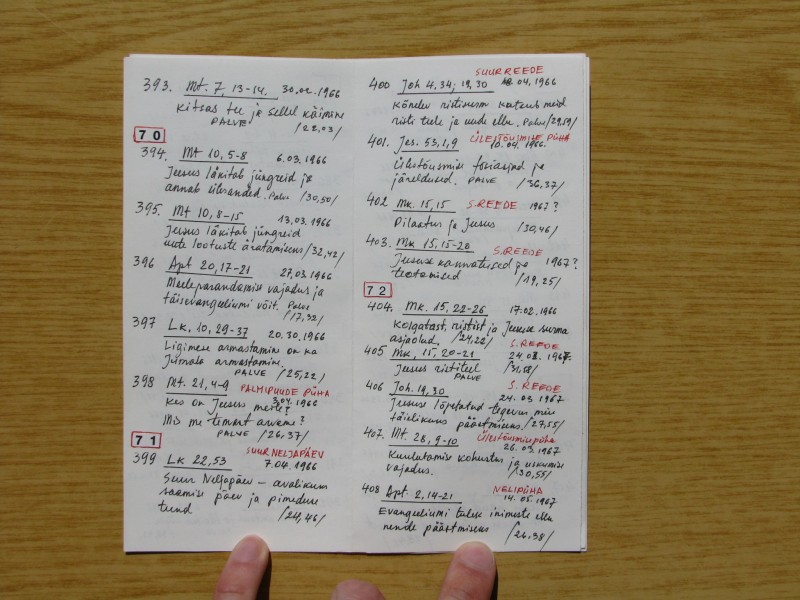 393. Mt. 7, 13-14. 30.02.1966
Kitsas tee ja sellel käimine
PALVE /22,03/
70
394. Mt 10, 5-8 6.03.1966
Jeesus läkitab jüngreid ja
annab ülesanded. Palve /30,50/
395. Mt 10, 8-15 13.03.1966
Jeesus läkitab jüngreid
uute lootuste äratamiseks /32,42/
396 Apt 20, 17-21 27.03.1966
Meeleparandamise vajadus ja
täisevangeeliumi võit. Palve
/17,32/
397 Lk. 10, 29-37 20.30.1966
Ligimese armastamine on ka
Jumala armastamine.
PALVE /25,22/
398 Mt. 21, 4-9 PALMIPUUDE PÜHA
3.04.1966
Kes on Jeesus meile?
Mis me temast arvame?
PALVE /26,37/
71
SUUR NELJAPÄEV
399 Lk 22,53 7.04.1966
Suur Neljapäev – avalikum
saamise päev ja pimeduse
tund /24,46/
SUURREEDE
400 Joh 4,34; 19,30 04.1966
Kõnelev ristisõnum kutsub meid
risti teele ja uude ellu. Palve /29,59/
ÜLESTÕUSMISE PÜHA
401. Jes. 53,1,9 10.04.1966.
Ülestõusmise tõsiasjad ja
järeldused. PALVE /36,37/
402 Mk. 15,15 S.REEDE 196??
Pilaatus ja Jeesus /30,46/
403. Mk 15, 15-20 S.REEDE
1967?
Jeesuse kannatused ja
teotamised /19,25/
72
404. Mk. 15, 22-26 17.02.1966
Kolgatast, ristist ja Jeesuse surma
asjaolud. /24,22/
S.REEDE
405 Mk, 15, 20-21 24.03.1967
Jeesus ristiteel /31,58/
PALVE
S. REEDE
406 Joh. 19, 30 24.03 1967
Jeesuse lõpetatud tegevus meie
täielikuks päästmiseks. /27,55/
Ülestõusmise püha
407. Mt. 28, 9-10 26.03.1967
Kuulutamise kohustus ja uskumise
vajadus. /30,55/
NELIPÜHA
408 Apt. 2, 14-21 14.05.1967
Evangeeliumi tulek inimeste ellu
nende päästmiseks /26,38/